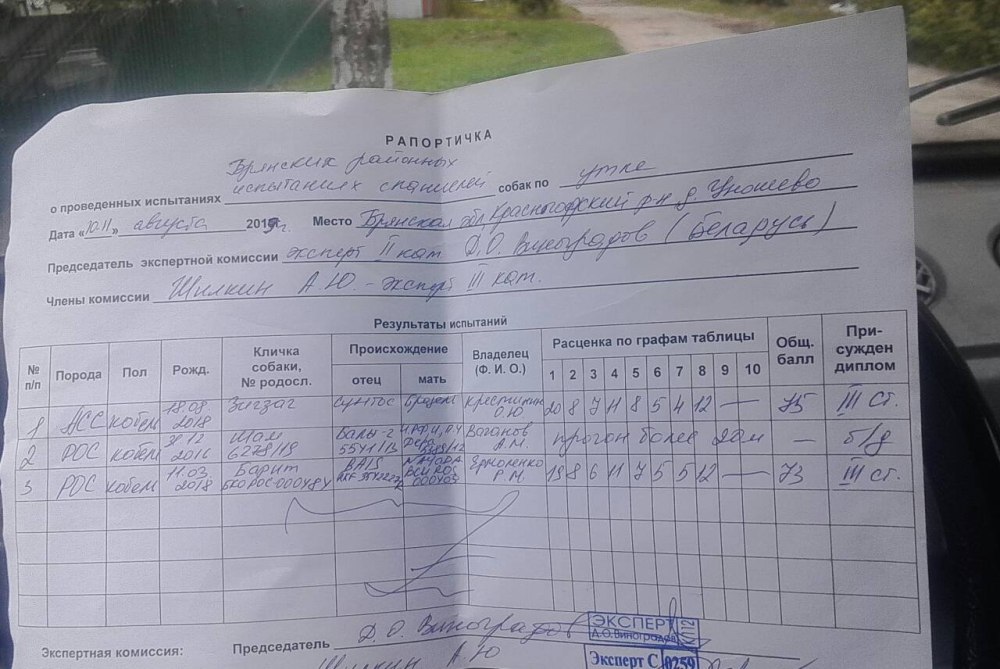 РАПОРТИЧКА
Брянских районных
о проведенных испытаниях испытаниях спаниелей собак по утке
Дата «10.11» августа 2019г. Место Брянская обл Красногорский р-н д. Уношево
Председатель экспертной комиссии эксперт II кат. Д.О. Виноградов (Беларусь)
Члены комиссии Шилкин А.Ю. - эксперт III кат.
Результаты испытаний
№ п/п Порода Пол Рожд. Кличка собаки, № родосл. Происхождение Владелец (Ф. И. О.) Расценка по графам таблицы Общ. балл При-сужден диплом
отец мать 1 2 3 4 5 6 7 8 9 10
1 АСС кобель 18.08 2018 Зигзаг О.Ю 20 8 7 11 8 5 4 12 — 75 III ст.
2 РОС кобель 2016 Шам 6278/19 Балы-2 Ваганов А.М. прогон более 20м — б/д
3 РОС кобель 11.03 2018 Барит Ермоленко Р.М. 19 8 6 11 7 5 5 12 — 73 III ст.
Экспертная комиссия: Председатель Д.О. Виноградов
ЭКСПЕРТ
Д.О.Виноградов
Шилкин А.Ю
Эксперт С 0259